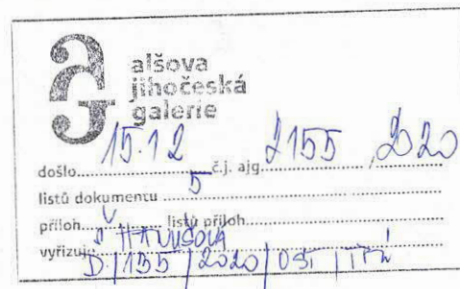 alšova
jihočeská
galerie
došlo 15.12 č.j. ajg. 2155, 2020
listů dokumentu 5
příloh listů příloh
vyřizuj
D/155/2020/OST/